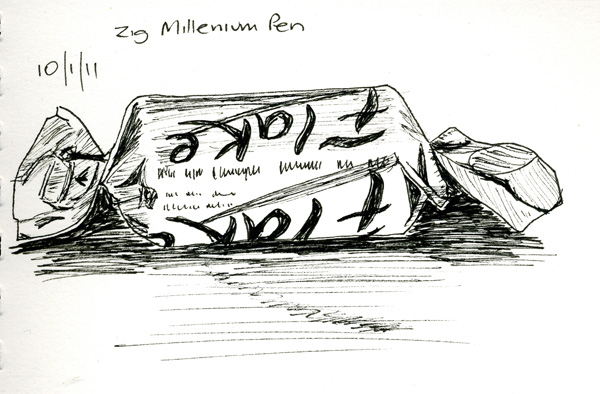 Zig Millenium Pen
10/1/11
Flake
Flak